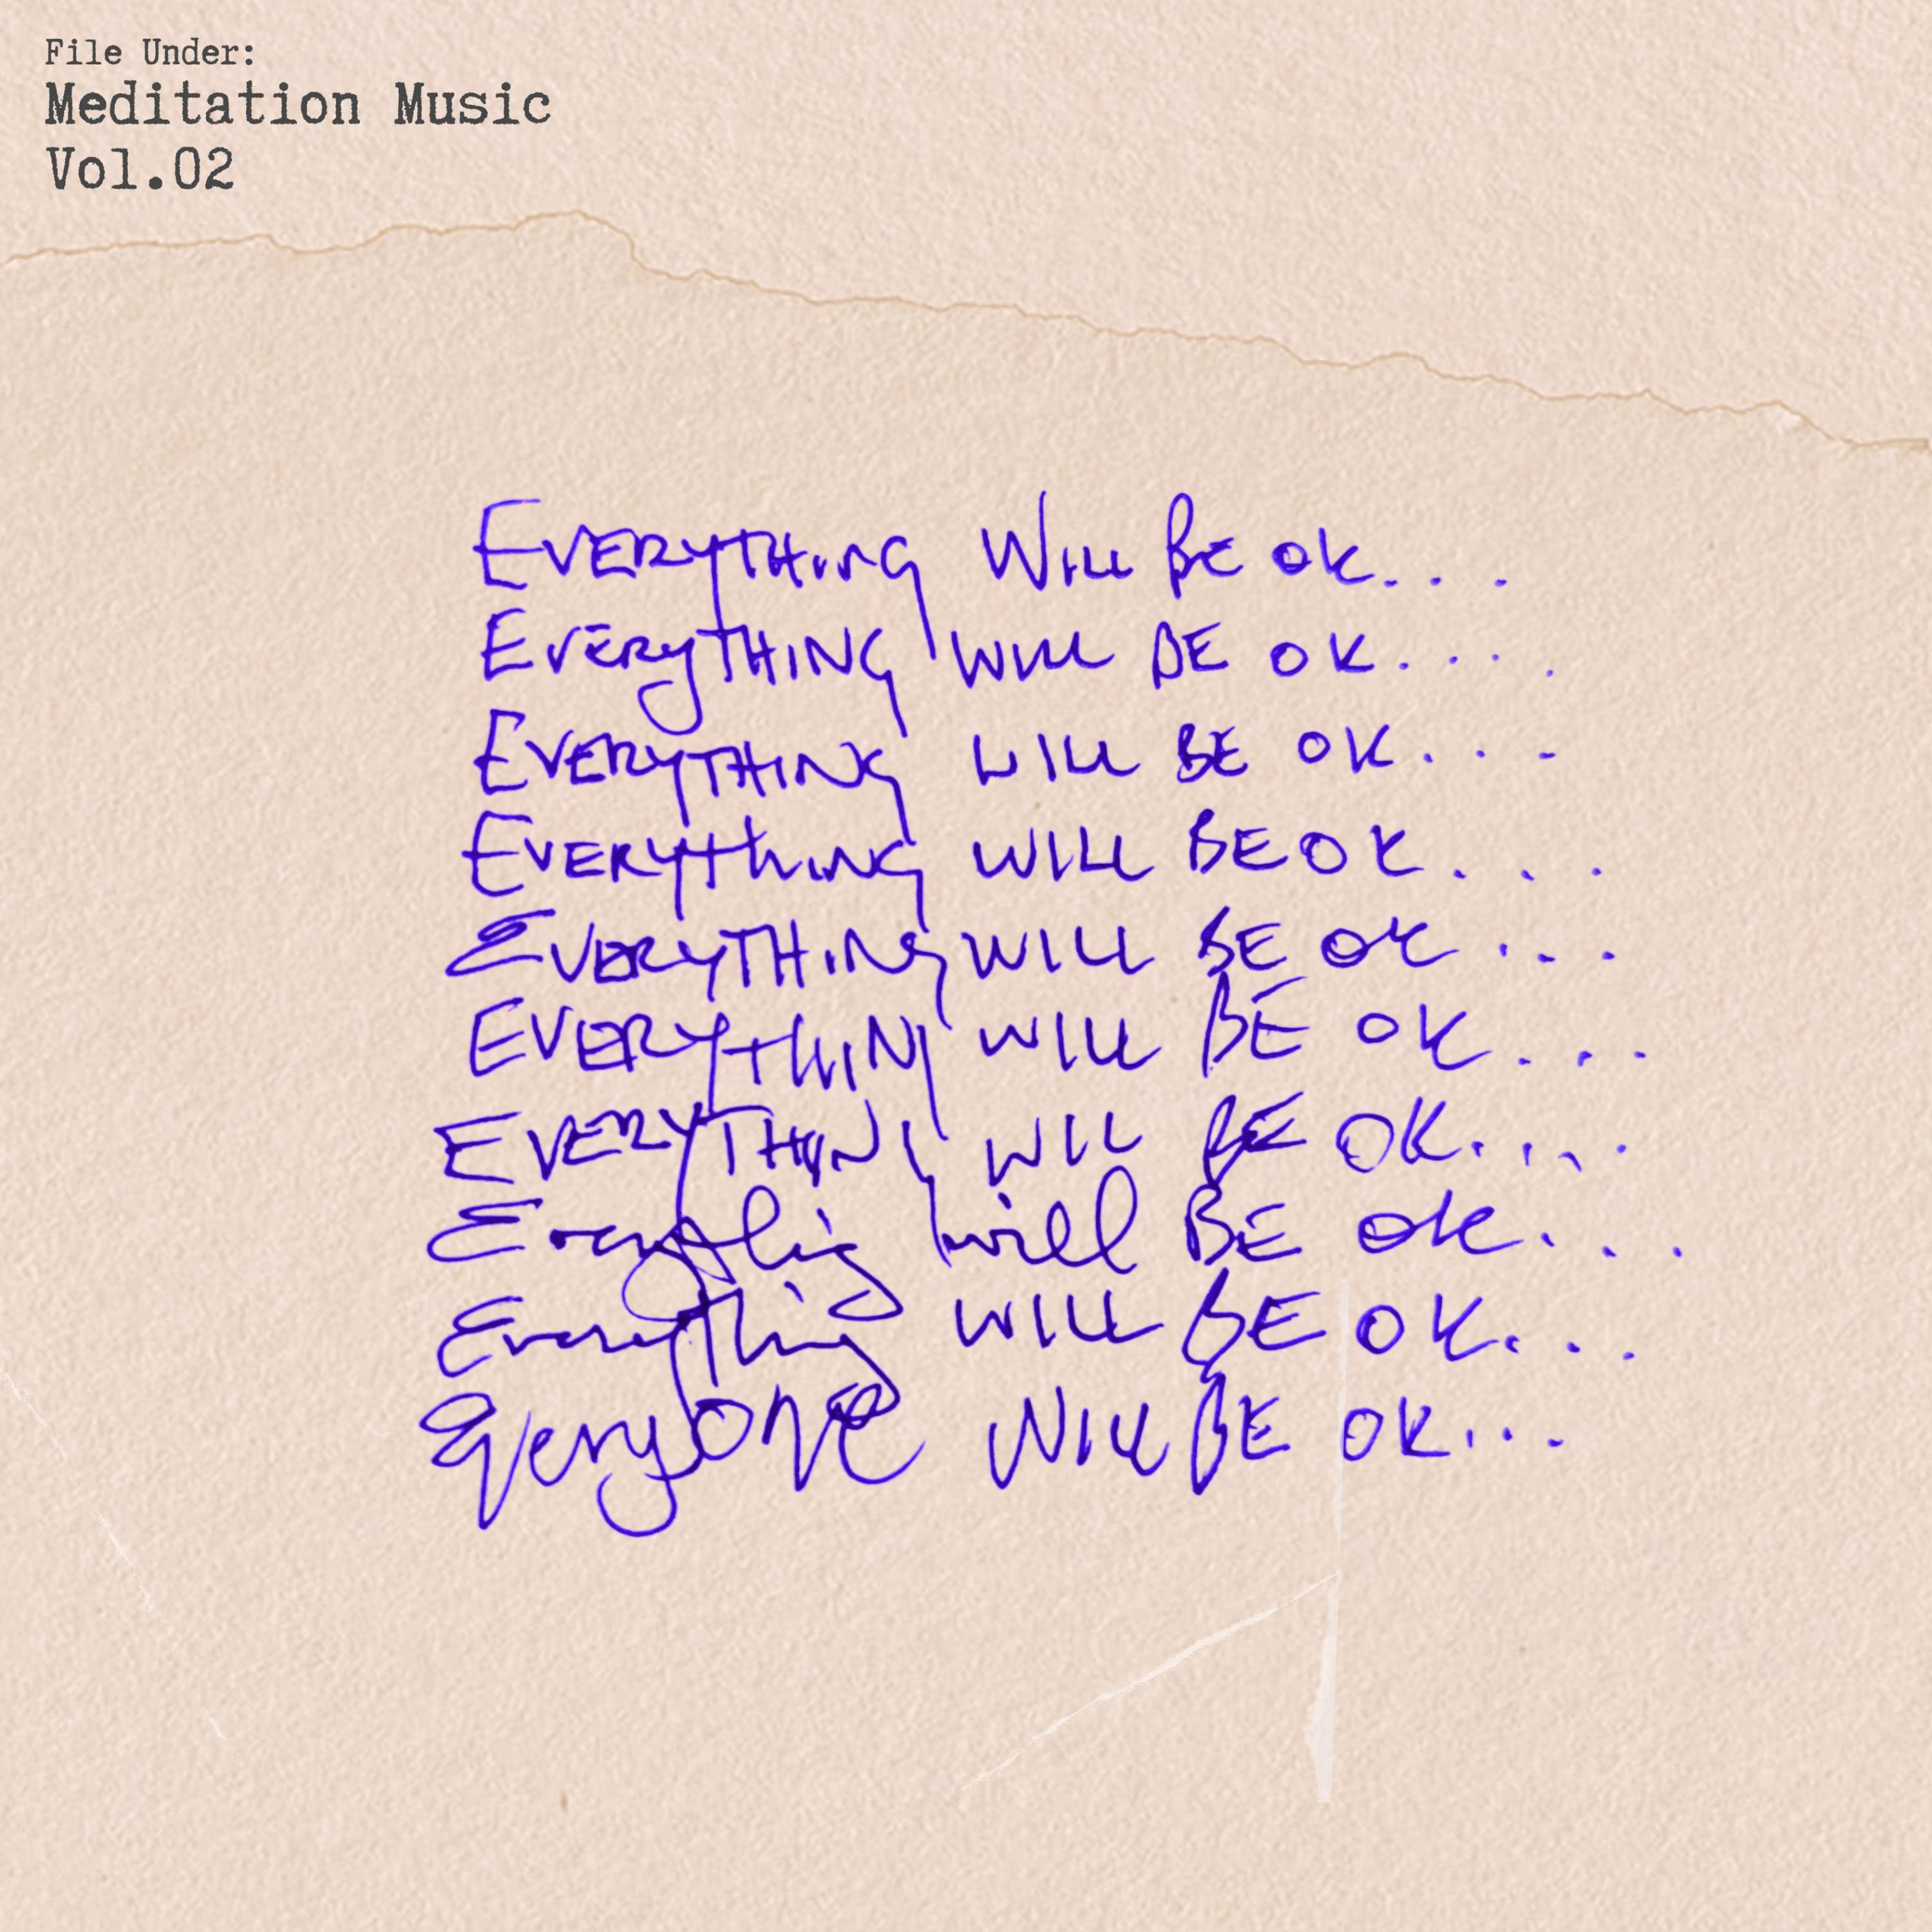 File Under:
Meditation Music
Vol.02
EVERYTHING WILL BE OK...
EVERYTHING WILL BE OK....
EVERYTHING WILL BE OK...
EVERYthING WILL BE OK...
EVERYTHING WILL BE OK...
EVERYthING WILL BE OK...
EVERYTHING WILL BE OK....
Everything will BE OK...
Everything WILL BE OK...
EveryONe WILL BE OK...